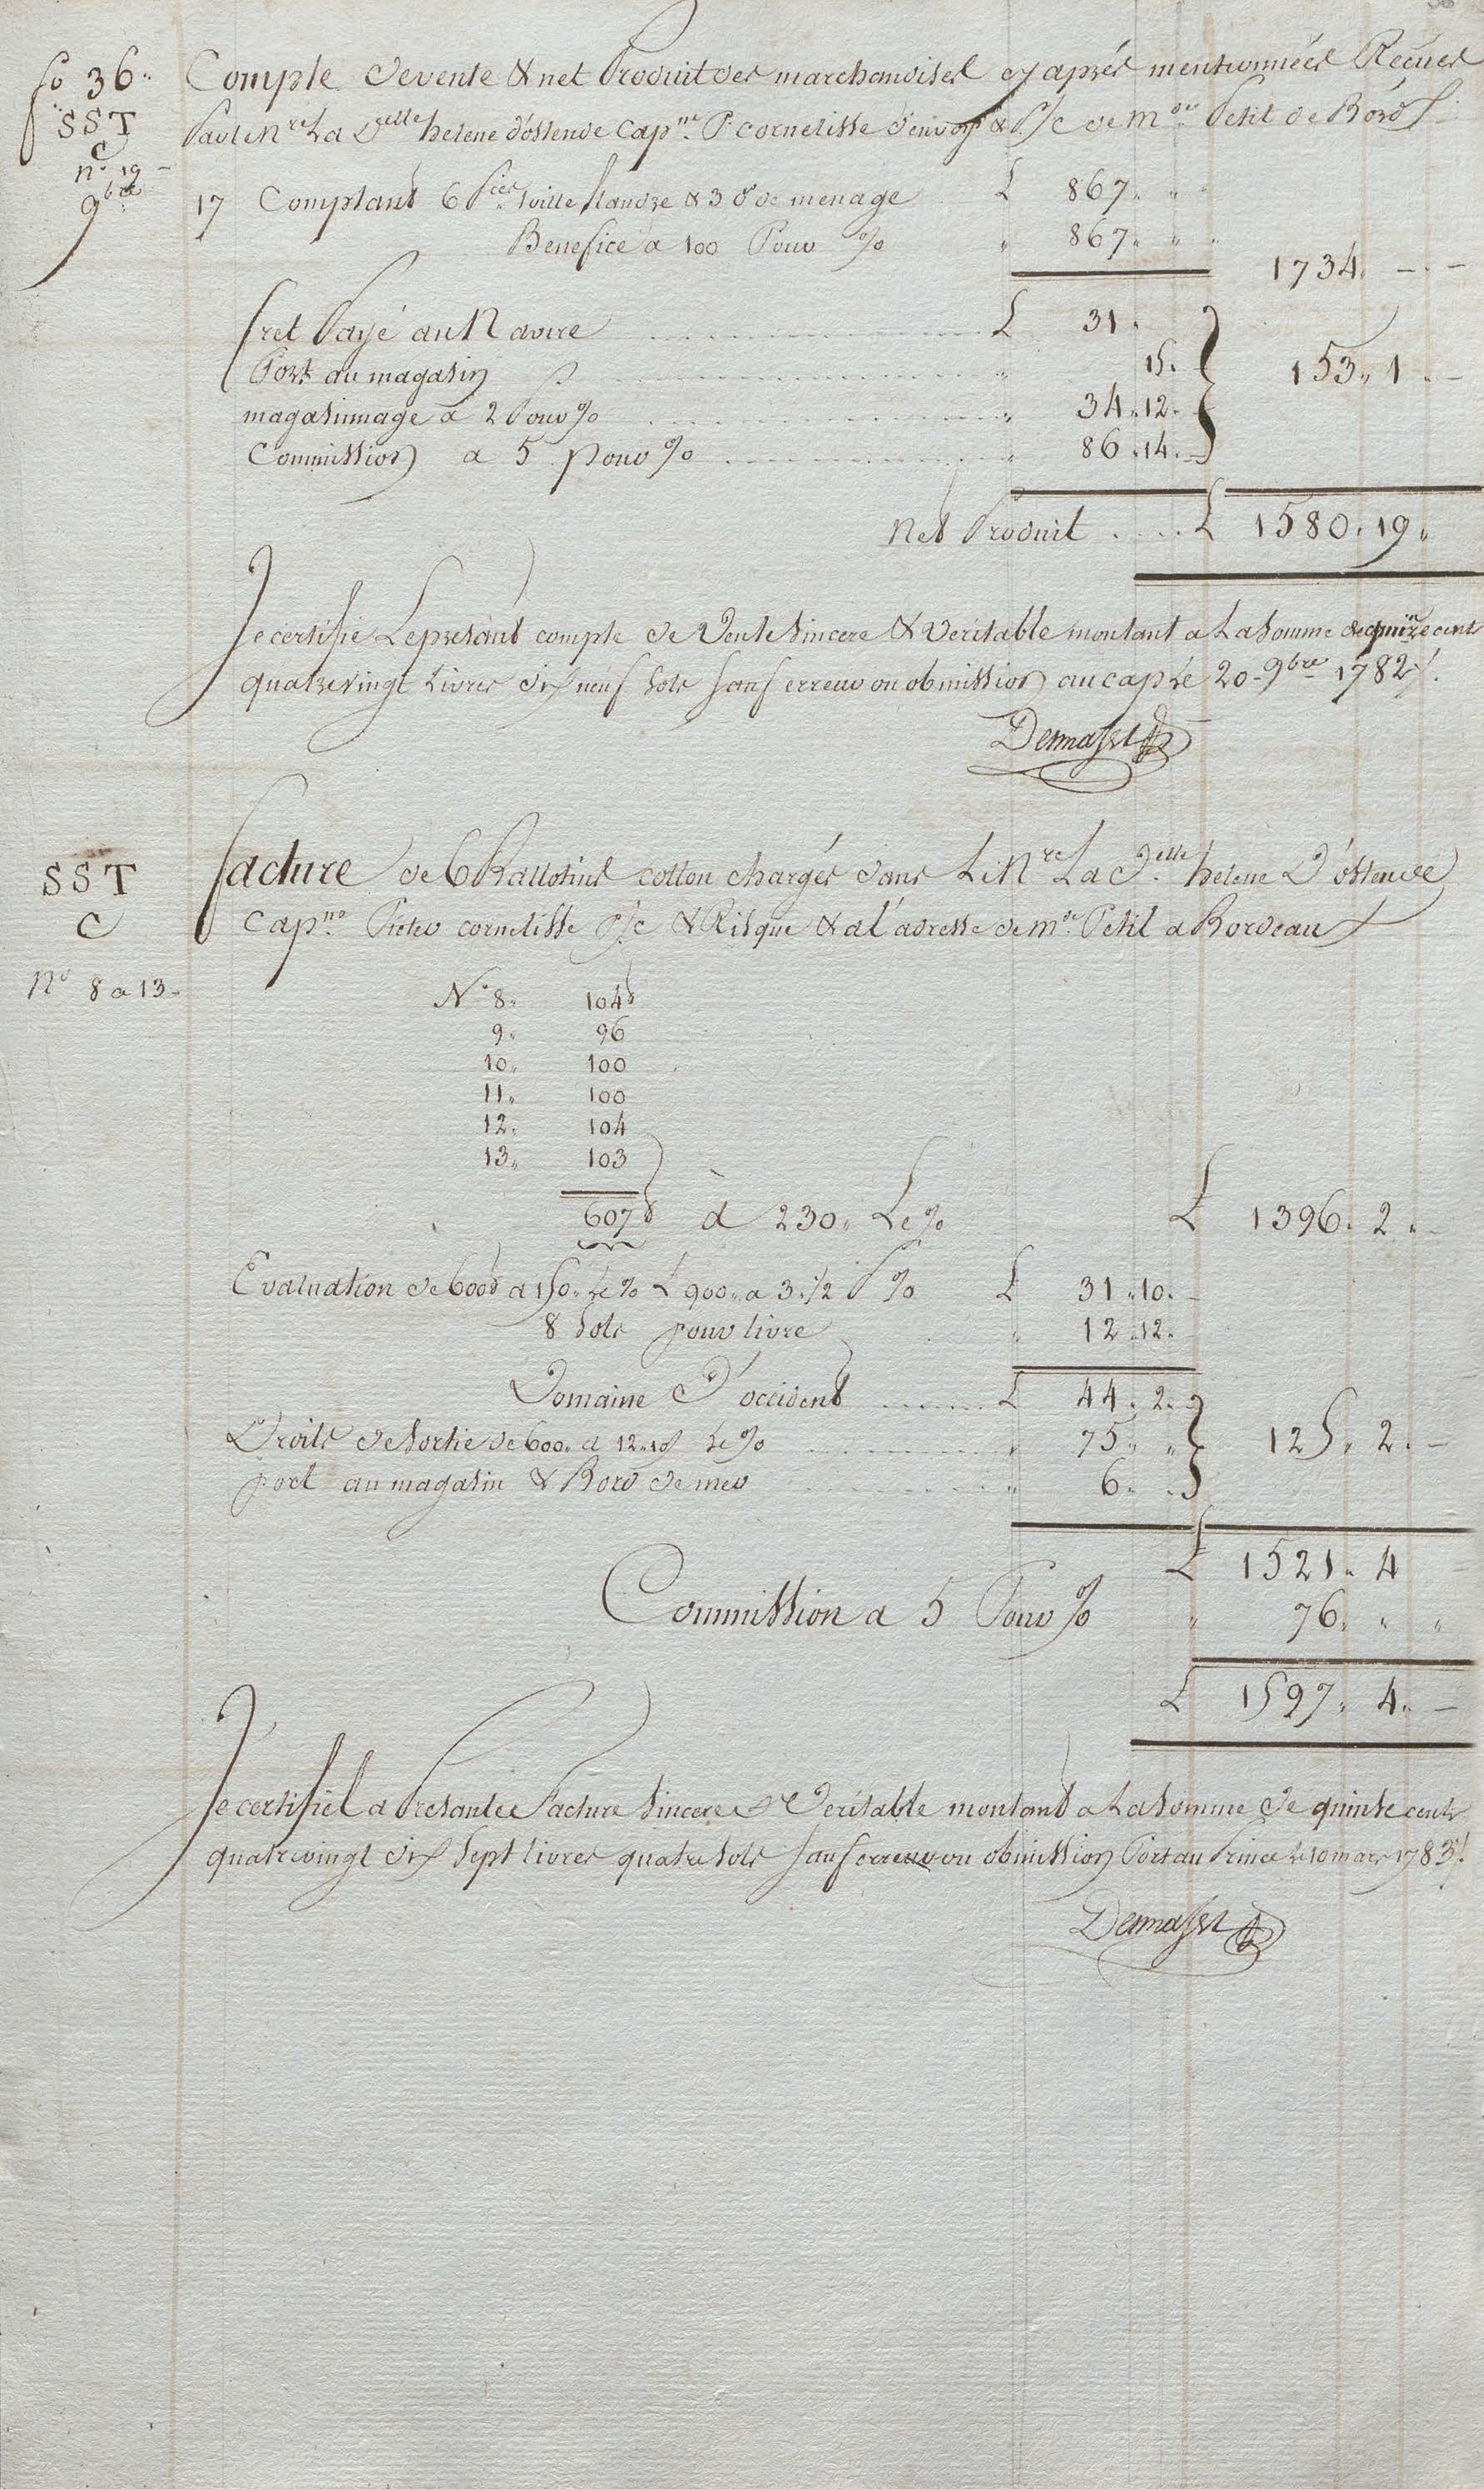 fo 36. Compte de vente & net Produit des marchandises cy après mentionnées Reçues
SST
C
Par le Nre La Delle helene d'ostende Capne P. cornelisse d'envoy & P/c de mde Petit de Bord/.
n° 19
9bre 17 Comptant 6 Pces toille flandre & 3 d° de menage £ 867. " "
Benefice a 100 Pour % " 867. " " 1734. - . -
fret Payé au Navire £ 31.
Port au magasin " 15. } 153. 1. -
magasinnage a 2 Pour % " 34. 12. -
Commission a 5 pour % " 86. 14. -
Net Produit .... £ 1580. 19.
Je certifie Le presant compte de Vente Sincere & Veritable montant a La Somme de quinze cent
quatre vingt Livres dix neuf Sols sauf erreur ou obmission au cap Le 20 - 9bre 1782/.
Demasset
SST
C
facture de 6 Ballotins cotton chargés dans Le Nre La Delle helene D'ostende
Capne Pieter cornelisse P/c & Risque & a l'adresse de mde Petit a Bordeaux
N° 8 a 13 -
N° 8. 104 lb
9. 96
10. 100
11. 100
12. 104
13. 103
607 lb à 230. Le % £ 1396. 2. -
Evaluation de 600 lb a 150. Le % £ 900. a 3. 1/2 P % £ 31. 10. -
8 Sols pour livre " 12. 12. -
Domaine D'occident ...... £ 44. 2. -
Droits de Sortie de 600. a 12. 10 s Le % " 75. " } 125. 2. -
port au magasin & Bord de mer " 6. .
£ 1521. 4
Commission a 5 Pour % " 76. " "
£ 1597. 4. -
Je certifie La Presante Facture Sincere & Veritable montant a La Somme de quinse cents
quatre vingt dix Sept livres quatre Sols sauf erreur ou obmission Port au Prince Le 10 mars 1783/.
Demasset